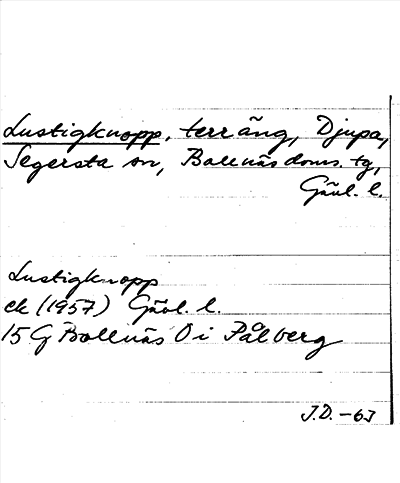 Lustigknopp, terräng, Djupa,
Segersta sn, Bollnäs doms. tg,
Gävl. l.
Lustigknopp
ek (1957) Gävl. l.
15 G Bollnäs 0 i Pålberg
J.D. -63